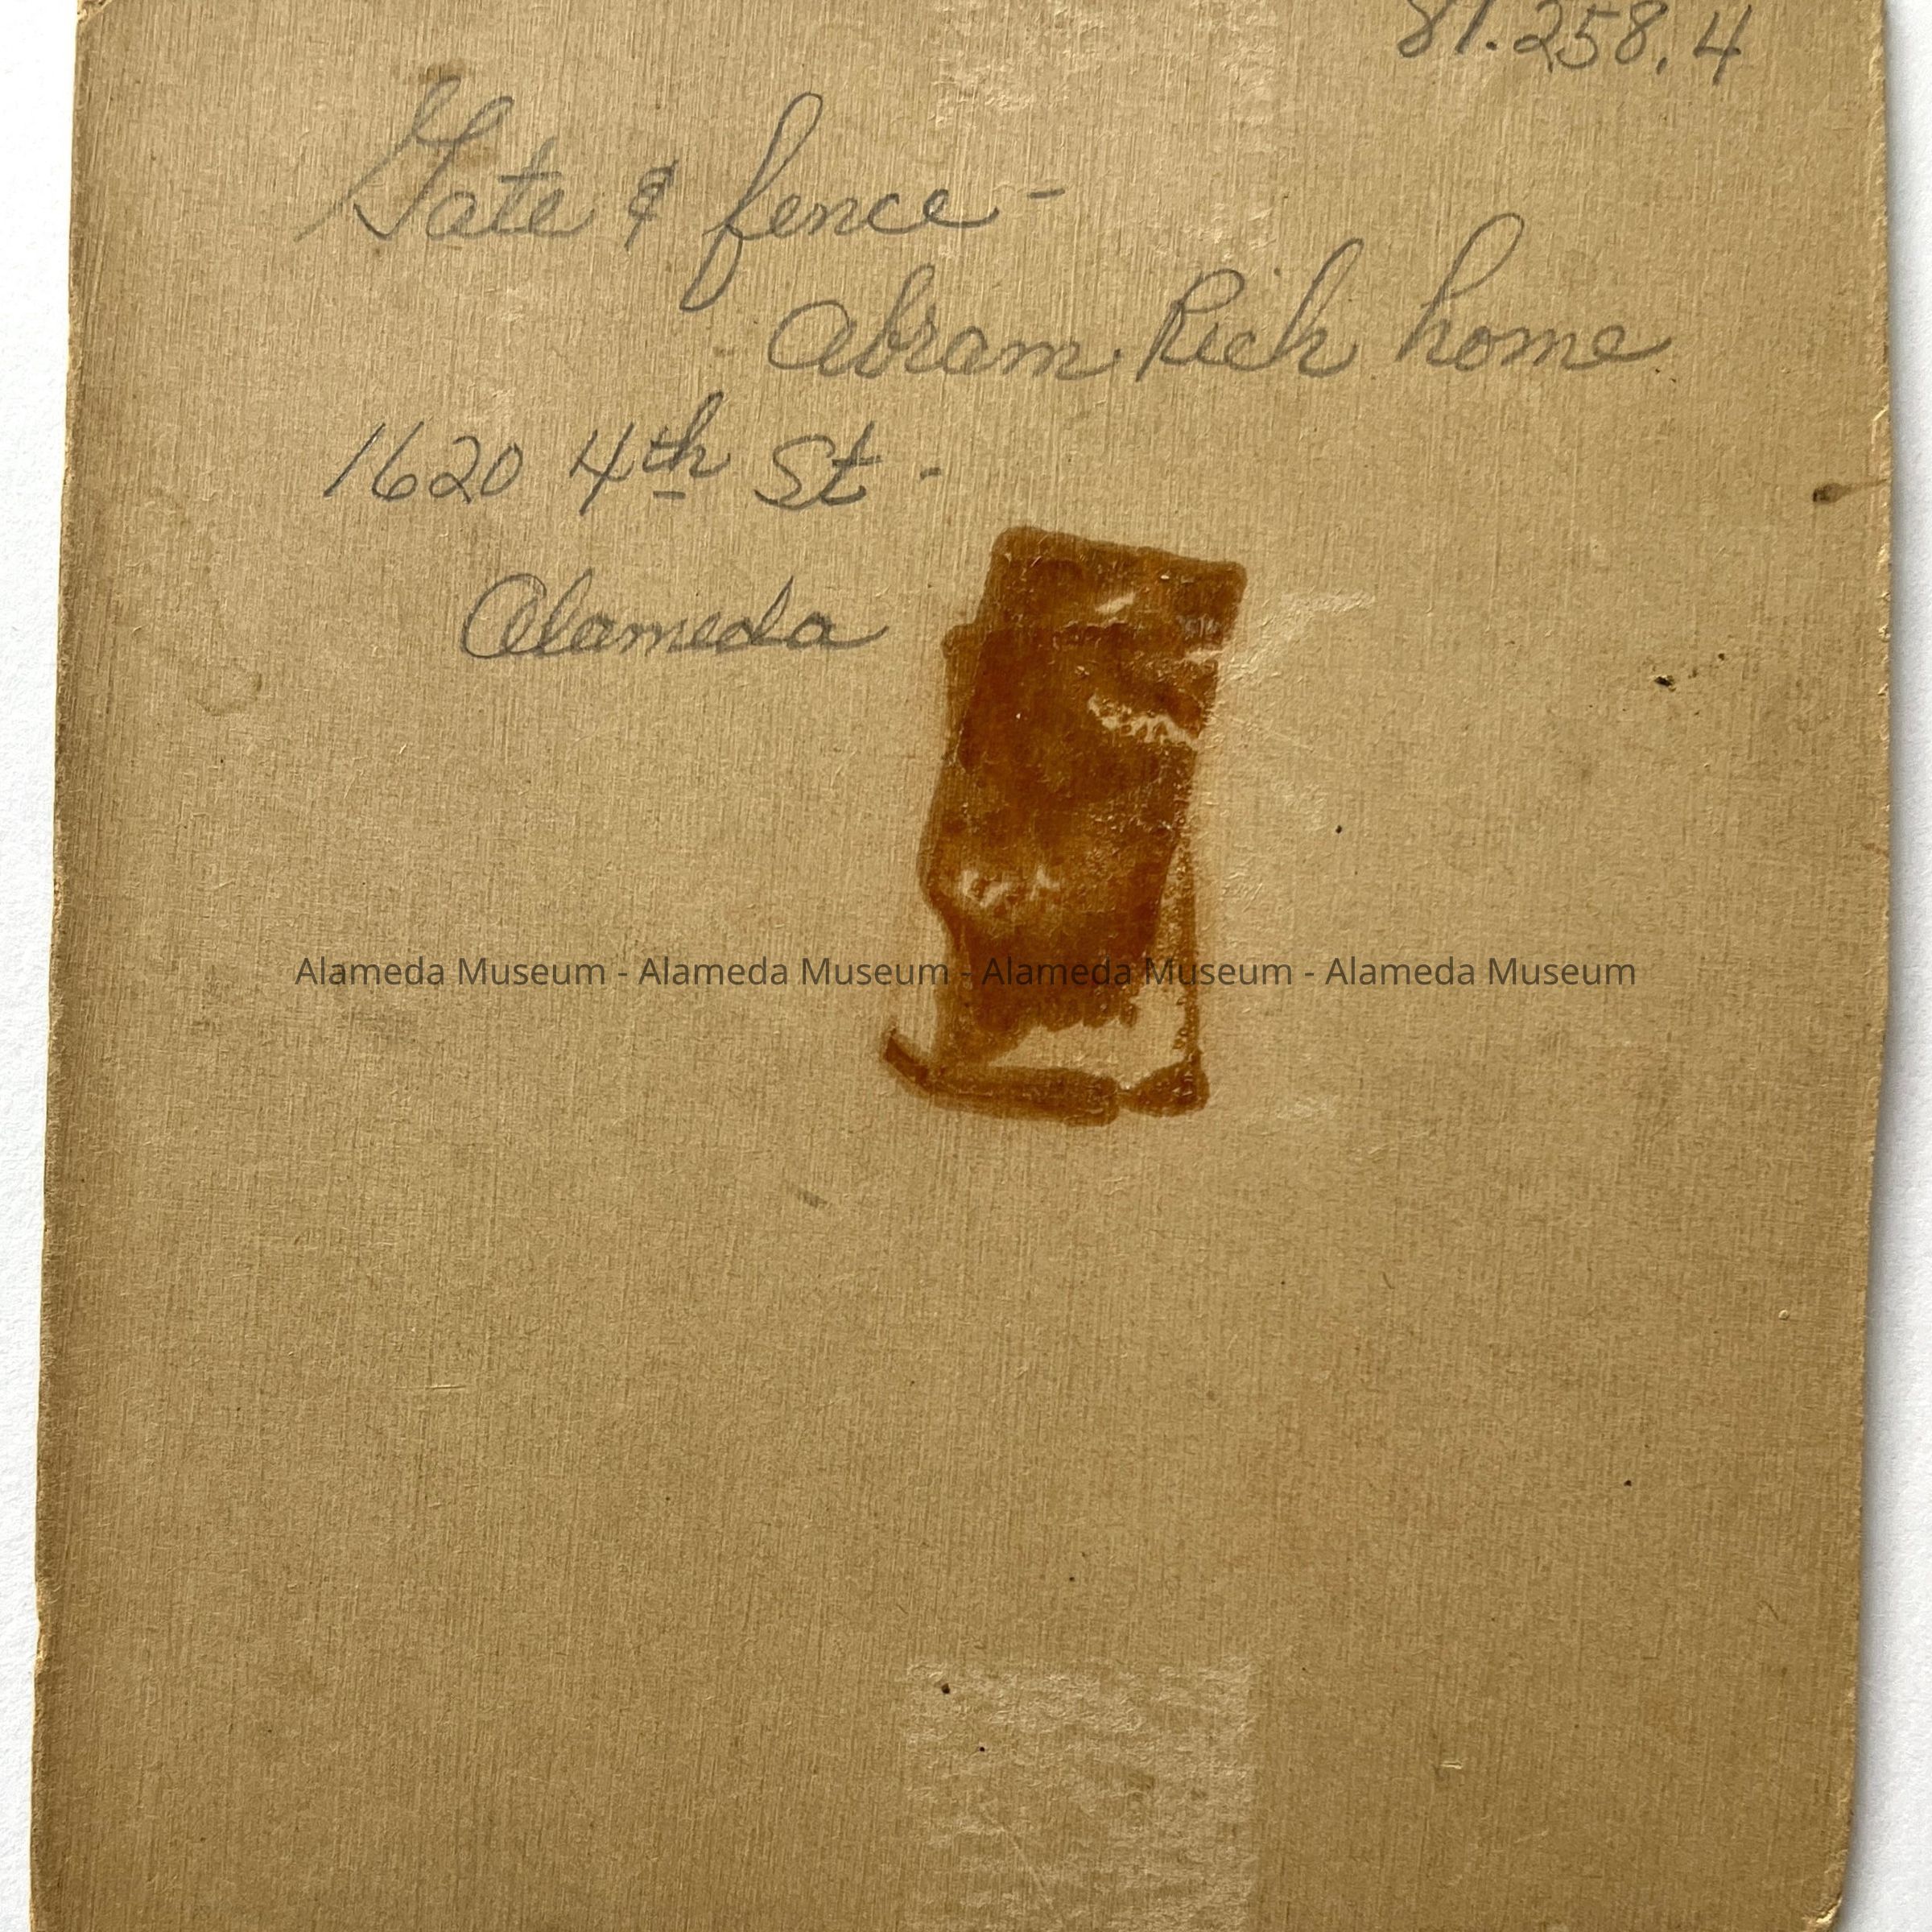 81.258.4
Gate & fence -
Abram Rich home
1620 4th St -
Alameda
Alameda Museum - Alameda Museum - Alameda Museum - Alameda Museum